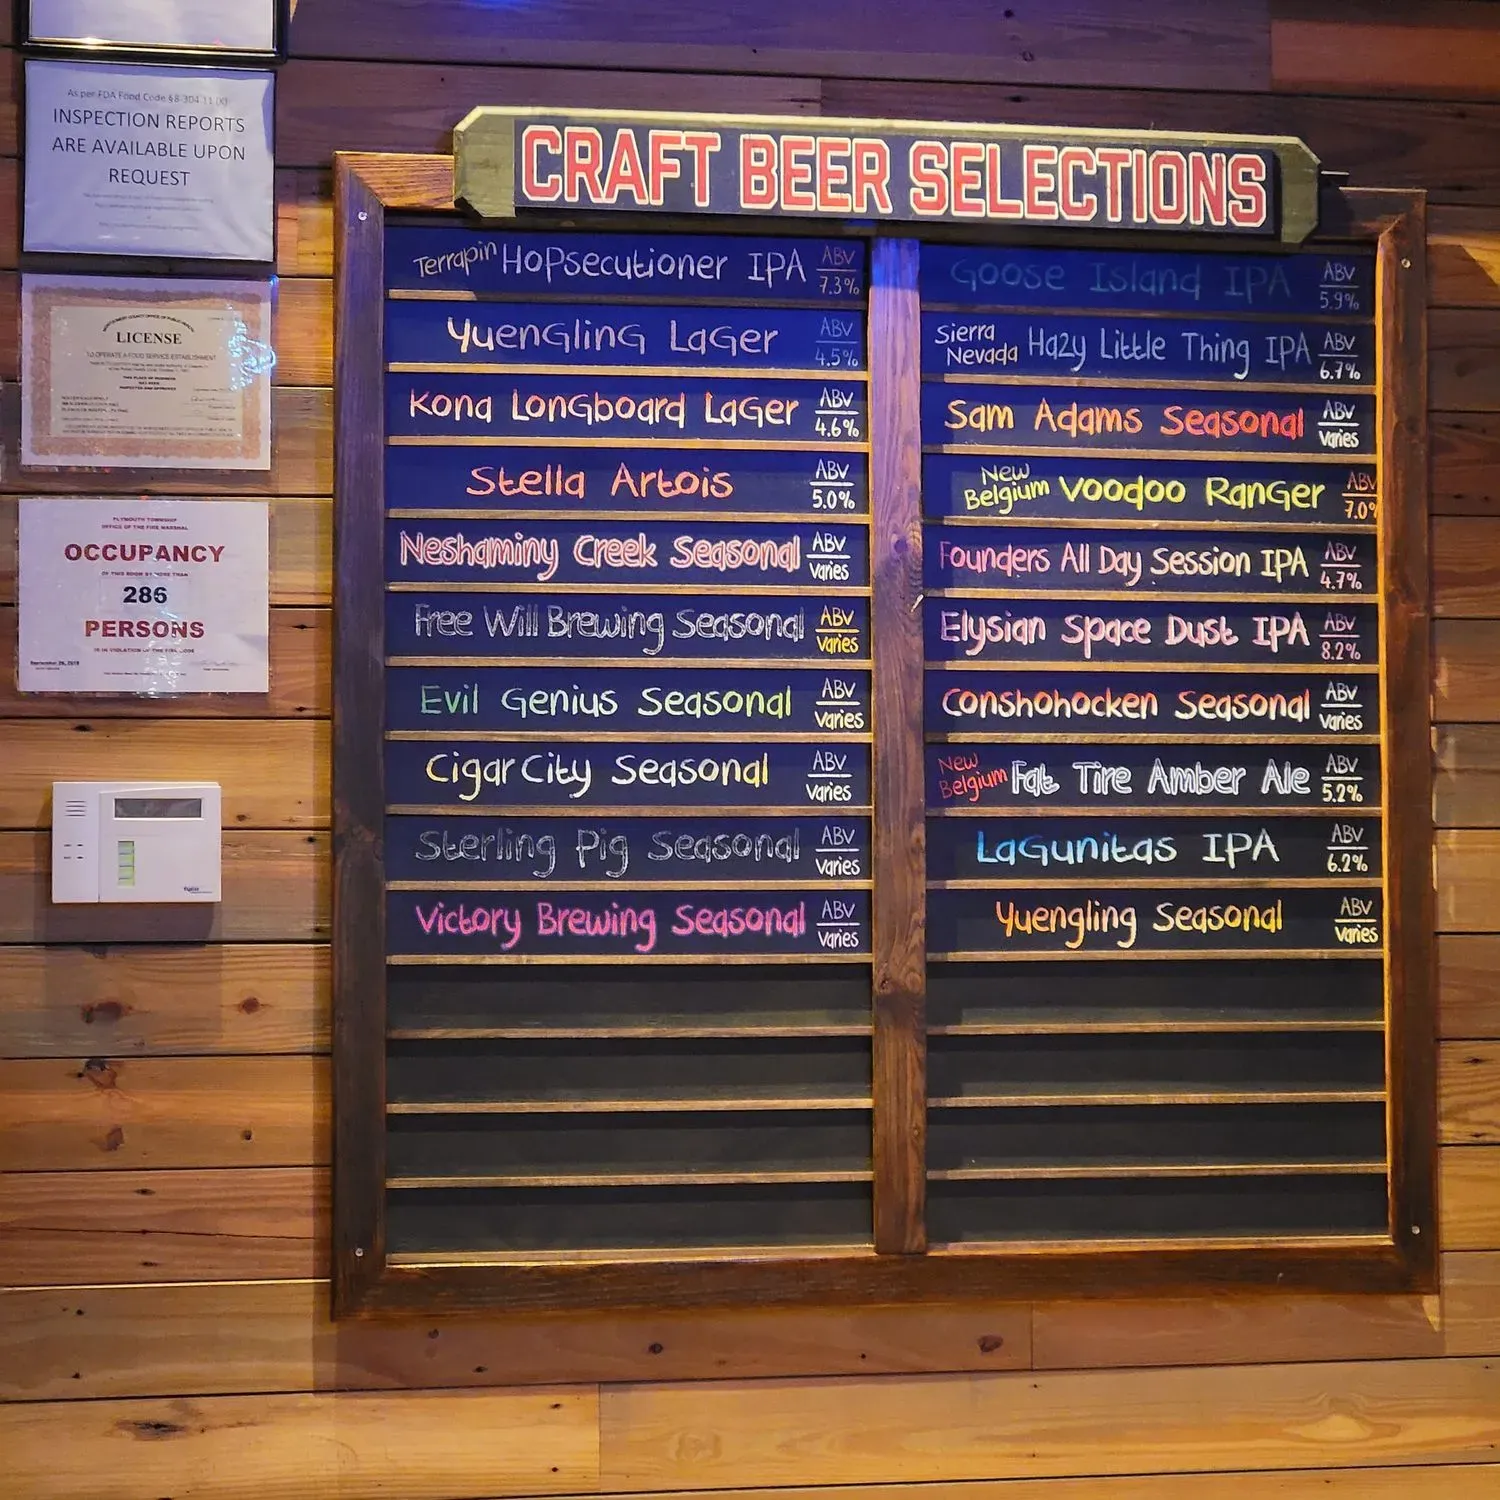 As per FDA Food Code §8-304.11 (K)
INSPECTION REPORTS
ARE AVAILABLE UPON
REQUEST
LICENSE
TO OPERATE A FOOD SERVICE ESTABLISHMENT
PLYMOUTH TOWNSHIP
OFFICE OF THE FIRE MARSHAL
OCCUPANCY
OF THIS ROOM BY MORE THAN
286
PERSONS
IS IN VIOLATION OF THE FIRE CODE
CRAFT BEER SELECTIONS
Terrapin Hopsecutioner IPA ABV 7.3%
Yuengling Lager ABV 4.5%
Kona Longboard Lager ABV 4.6%
Stella Artois ABV 5.0%
Neshaminy Creek Seasonal ABV varies
Free Will Brewing Seasonal ABV varies
Evil Genius Seasonal ABV varies
Cigar City Seasonal ABV varies
Sterling Pig Seasonal ABV varies
Victory Brewing Seasonal ABV varies
Goose Island IPA ABV 5.9%
Sierra Nevada Hazy Little Thing IPA ABV 6.7%
Sam Adams Seasonal ABV varies
New Belgium Voodoo Ranger ABV 7.0%
Founders All Day Session IPA ABV 4.7%
Elysian Space Dust IPA ABV 8.2%
Conshohocken Seasonal ABV varies
New Belgium Fat Tire Amber Ale ABV 5.2%
Lagunitas IPA ABV 6.2%
Yuengling Seasonal ABV varies